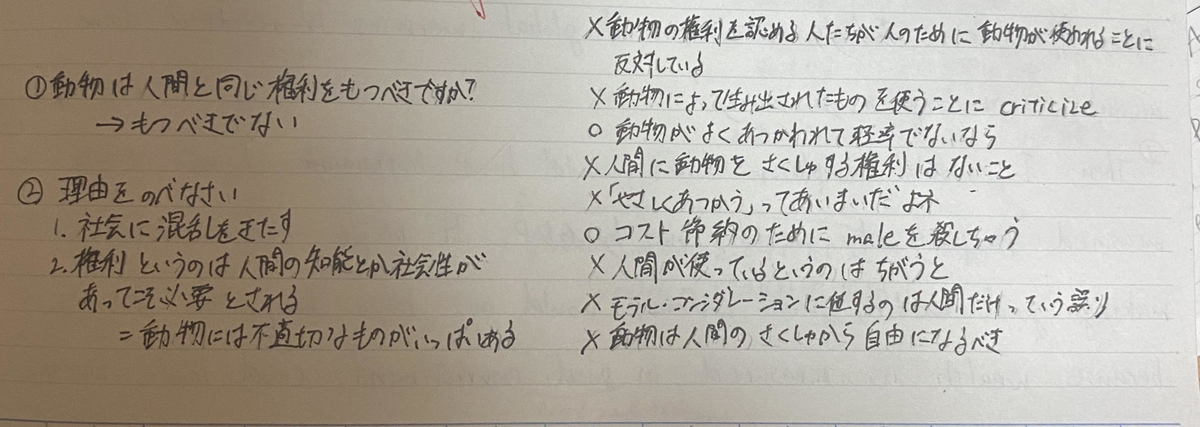 ①動物は人間と同じ権利をもつべきですか?
→もつべきでない
②理由をのべなさい
1. 社会に混乱をきたす
2. 権利というのは人間の知能とか社会性が
あってこそ必要とされる
=動物には不適切なものがいっぱいある
×動物の権利を認める人たちが人のために動物が使われることに
反対している
×動物によって生み出されたものを使うことにcriticize
○動物がよくあつかわれて軽率でないなら
×人間に動物をさくしゅする権利はないこと
×「やさしくあつかう」ってあいまいだよネ
○コスト節約のためにmaleを殺しちゃう
×人間が使っているというのはちがうと
×モラル・コンシダレーションに値するのは人間だけっていう誤り
×動物は人間のさくしゅから自由になるべき